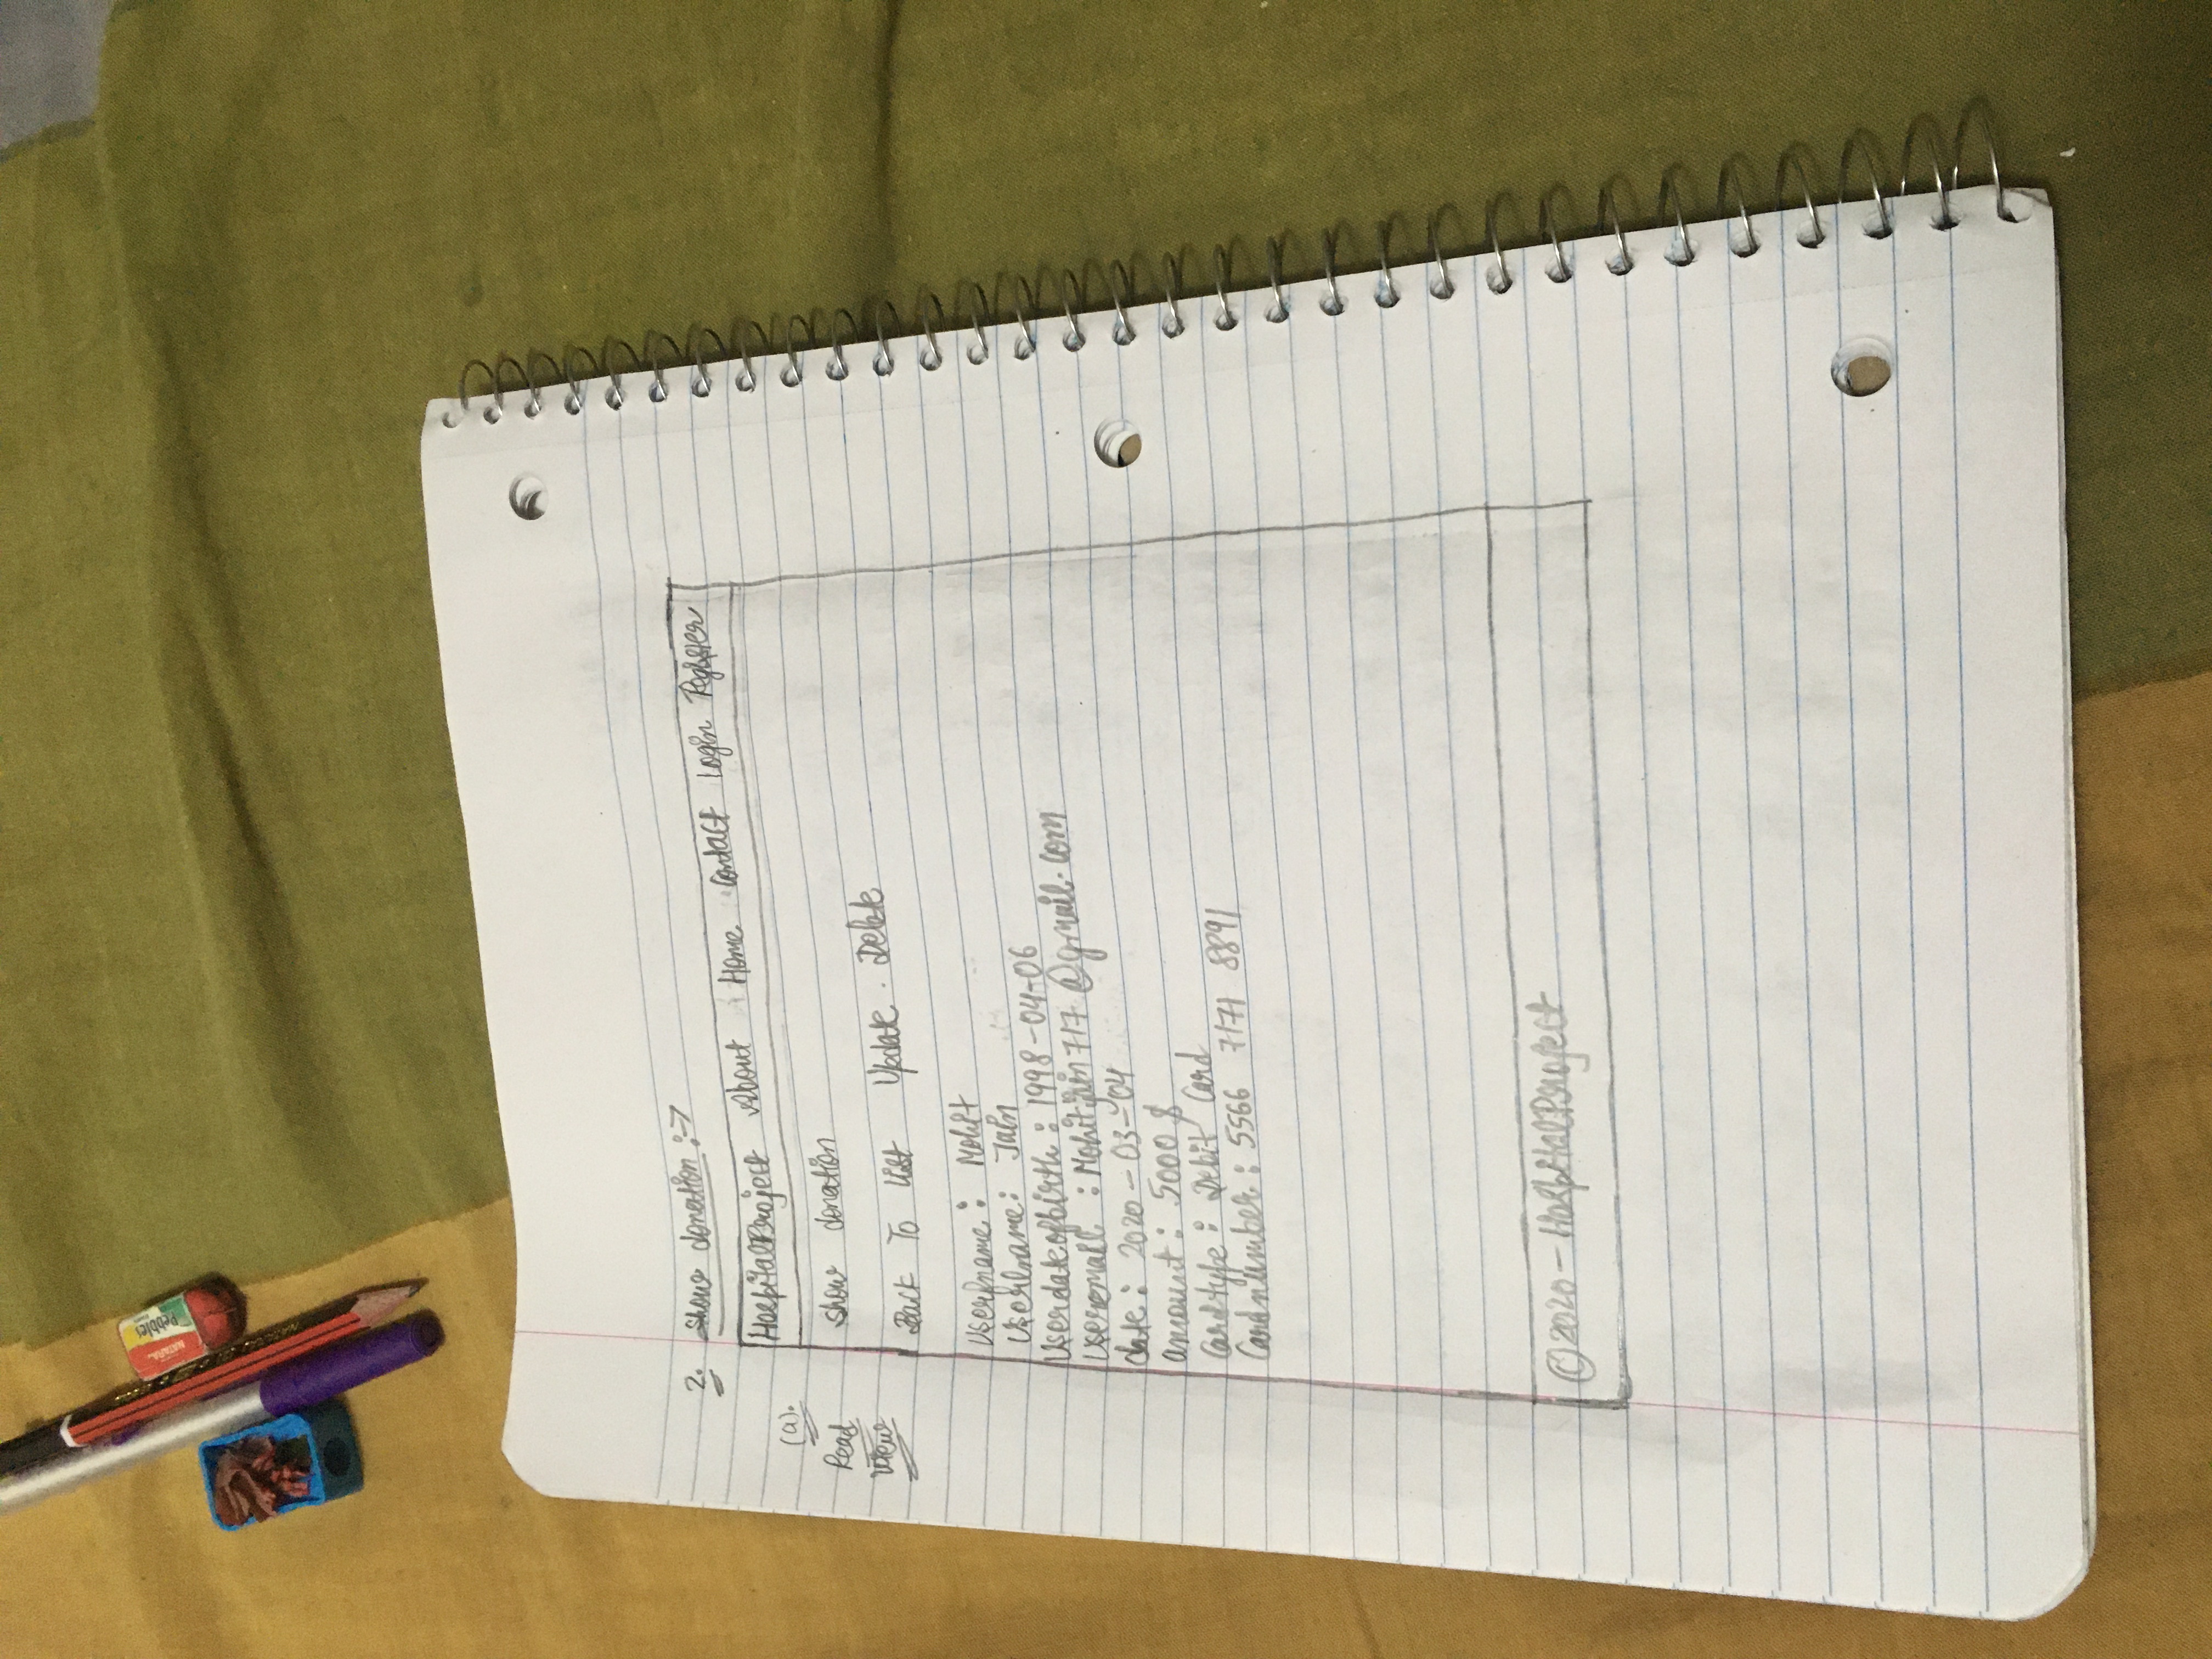 Pebbles
NATARAJ
2. Show donation :->
HospitalProject About Home Contact Login Register
(a).
Read
View
Show donation
Back To List Update . Delete
Userfname : Mohit
Userlname : Jain
Userdateofbirth : 1998-04-06
Useremail : Mohitjain717@gmail.com
date : 2020-03-04
amount : 5000 $
Cardtype : Debit Card
Cardnumber : 5566 7171 8891
©2020 - HospitalProject